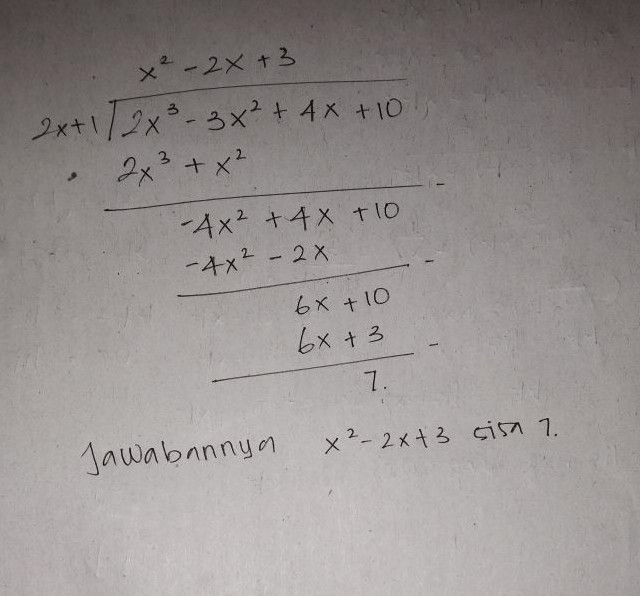 x² - 2x + 3
2x+1 2x³ - 3x² + 4x + 10
2x³ + x²
-
-4x² + 4x + 10
-4x² - 2x
-
6x + 10
6x + 3
-
7.
Jawabannya x² - 2x + 3 sisa 7.